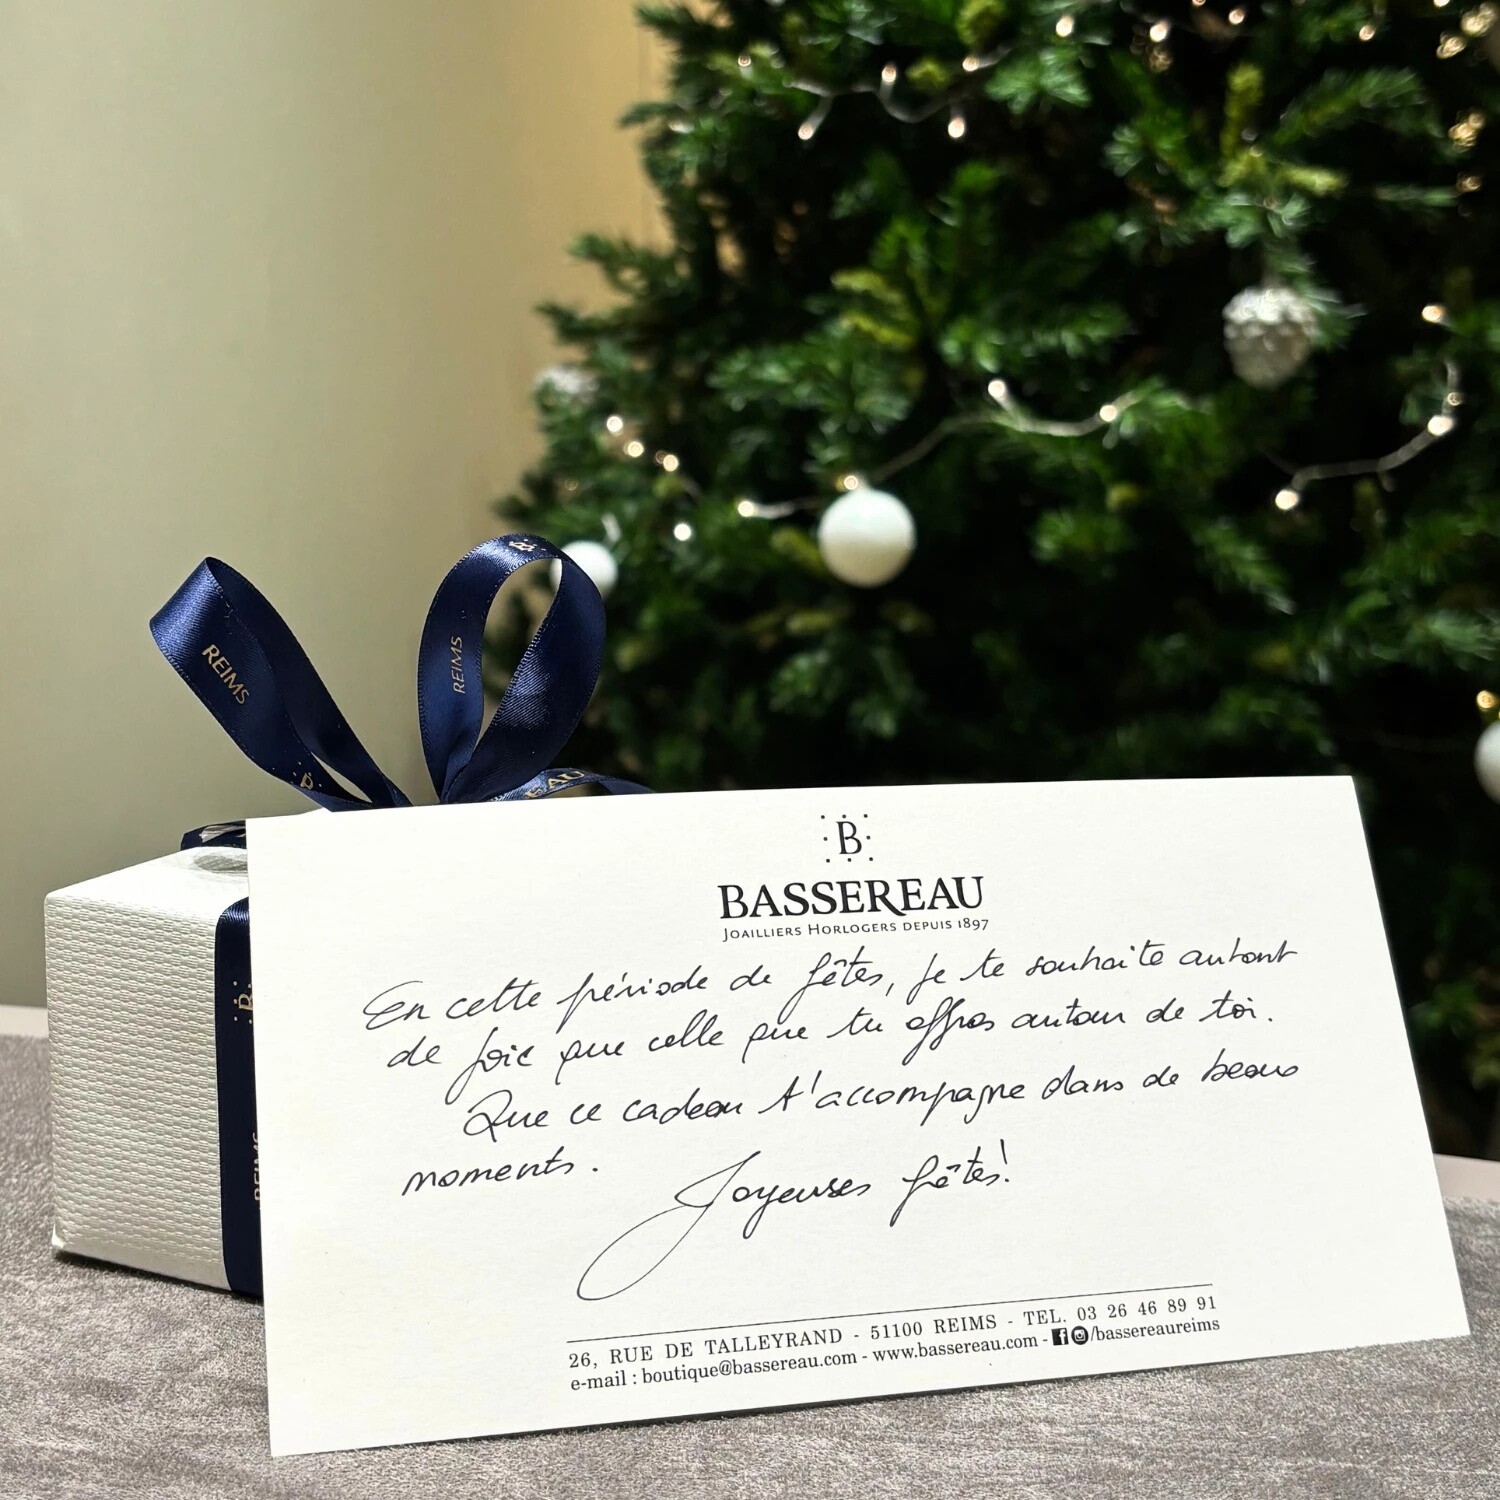 REIMS
REIMS
EAU
B
B
BASSEREAU
JOAILLIERS HORLOGERS DEPUIS 1897
En cette période de fêtes, je te souhaite autant
de joie que celle que tu offres autour de toi.
Que ce cadeau t'accompagne dans de beaux
moments.
Joyeuses fêtes!
REIMS
26, RUE DE TALLEYRAND - 51100 REIMS - TEL. 03 26 46 89 91
e-mail : boutique@bassereau.com - www.bassereau.com - /bassereaureims